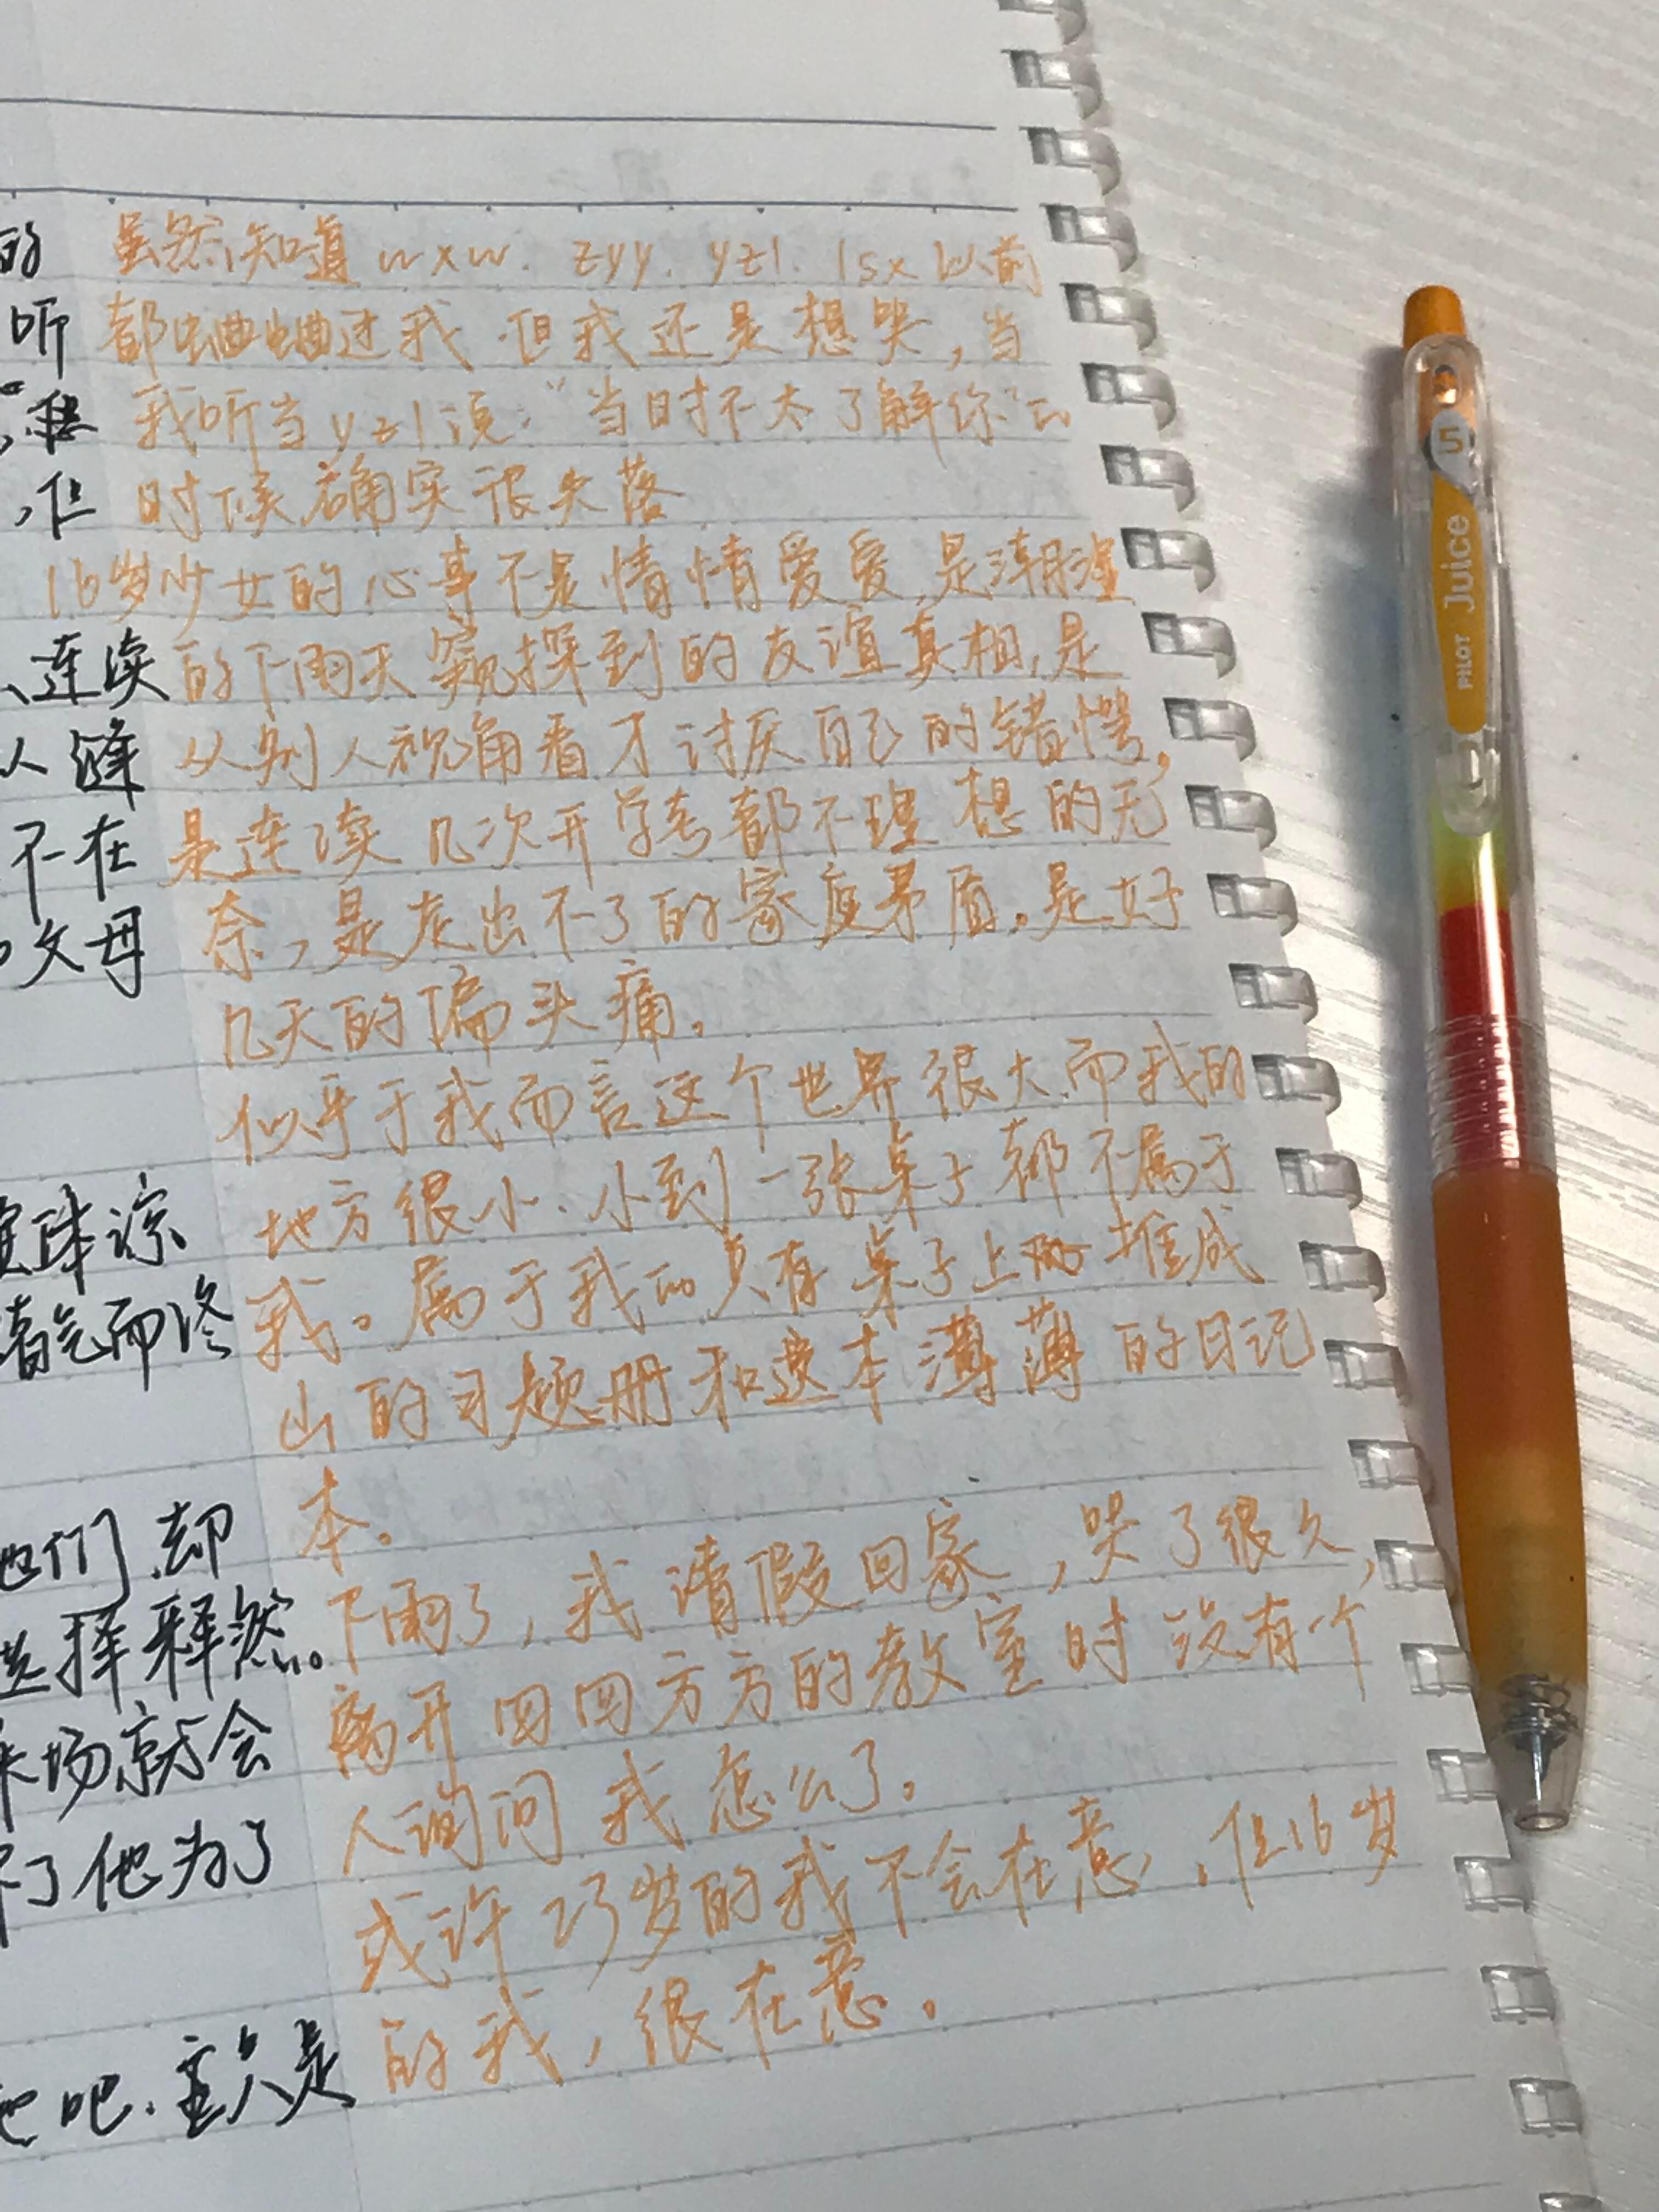 的 虽然知道 wxw. zyy. yzl. lsx 以前
听 都蛐蛐过我 但我还是想哭，当
我听当yzl说："当时不太了解你"的
，但 时候确实很失落
16岁少女的心事不是情情爱爱，是潮湿
、连续 的下雨天窥探到的友谊真相，是
人缝 从别人视角看才讨厌自己的错愕，
不在 是连续几次开学考都不理想的无
父母 奈，是走出不了的家庭矛盾。是好
几天的偏头痛。
似乎于我而言这个世界很大而我的
地方很小、小到一张桌子都不属于
而冷 我。属于我的只有桌子上 堆成
山的习题册和这本薄薄的日记
本。
他们却 下雨了，我请假回家，哭了很久，
选择释然。 离开四四方方的教室时没有一个
场就会 人询问我怎么了。
了他为了 或许23岁的我不会在意，但16岁
吧. 是 的我，很在意。
PILOT Juice
5